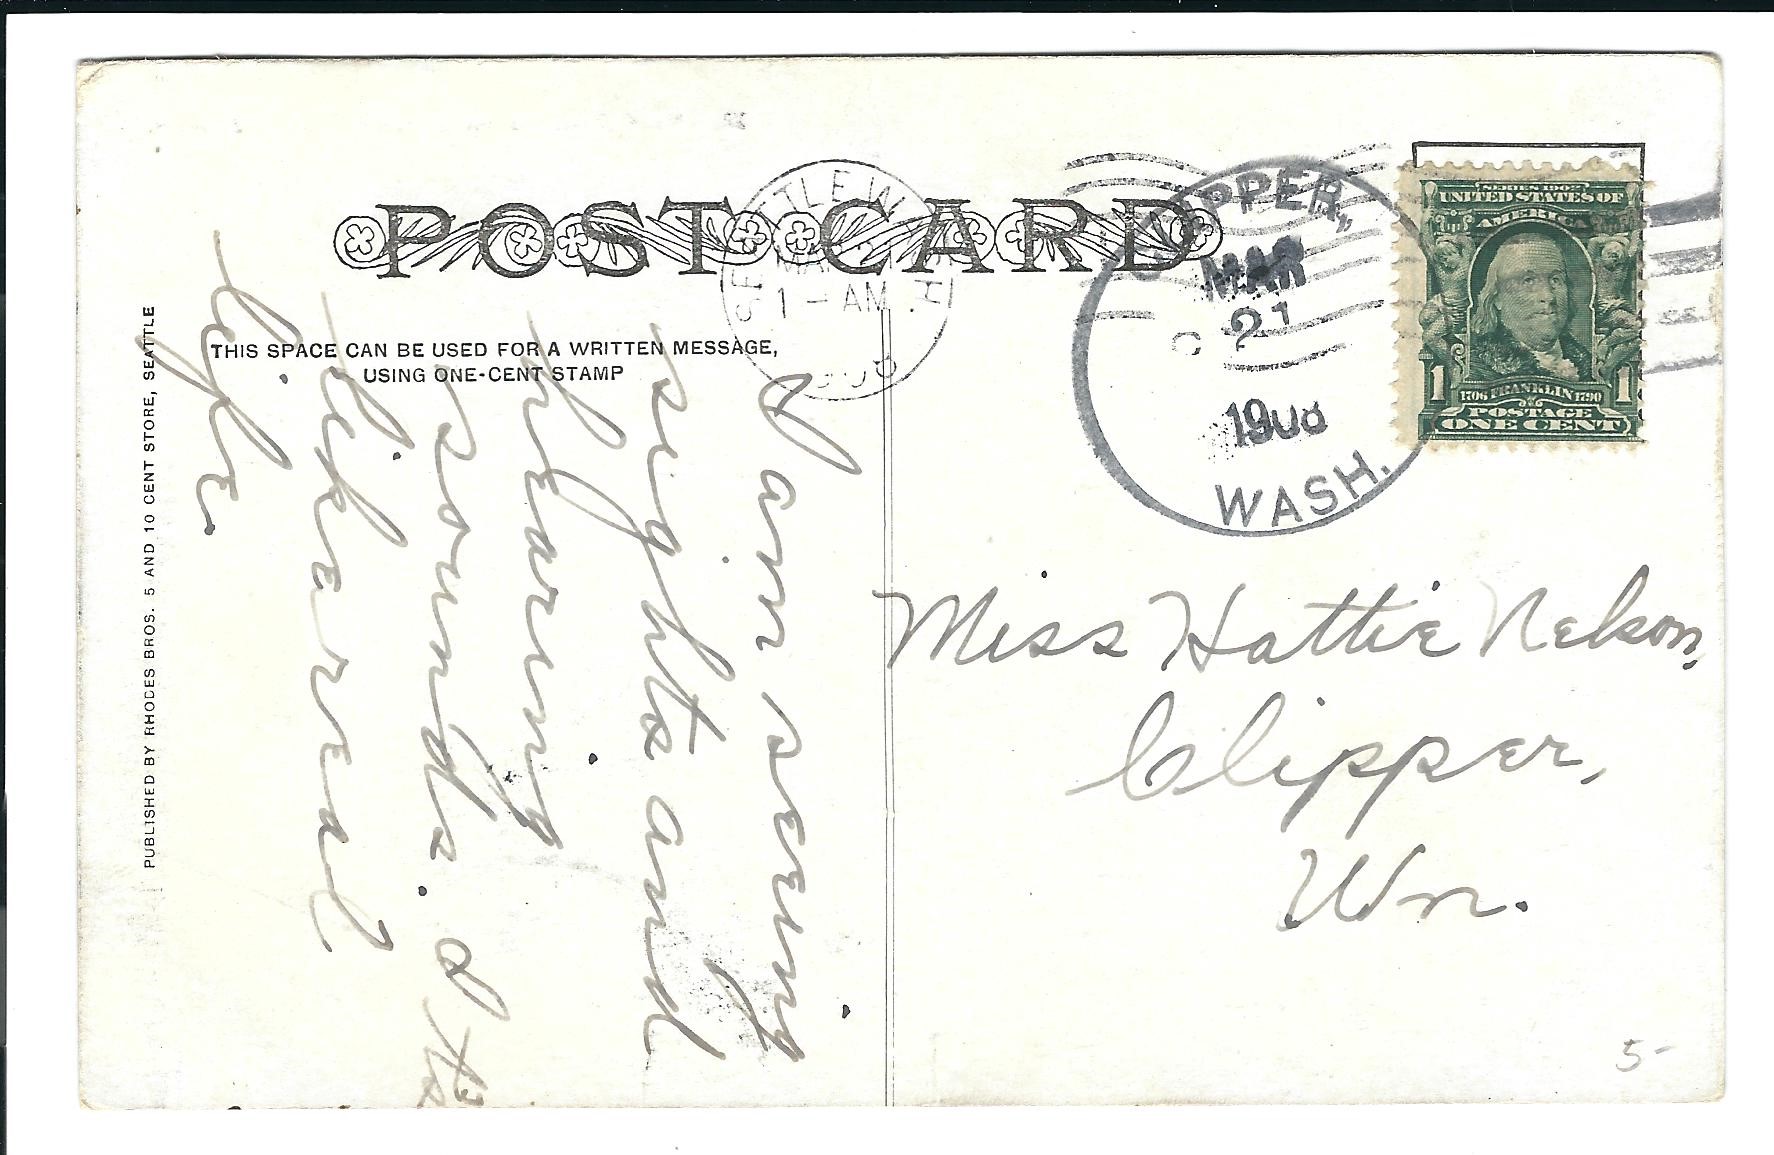 POST CARD
THIS SPACE CAN BE USED FOR A WRITTEN MESSAGE,
USING ONE-CENT STAMP
PUBLISHED BY RHODES BROS. 5 AND 10 CENT STORE, SEATTLE
SEATTLE WASH.
MAR
1 - AM
CLIPPER,
MAR
21
1908
WASH.
SERIES 1902
UNITED STATES OF
AMERICA
1 1
1706 FRANKLIN 1790
POSTAGE
ONE CENT
I am seeing
sights and
hearing
sounds. It is
like real
life.
Miss Hattie Nelson,
Clipper,
Wn.
5-